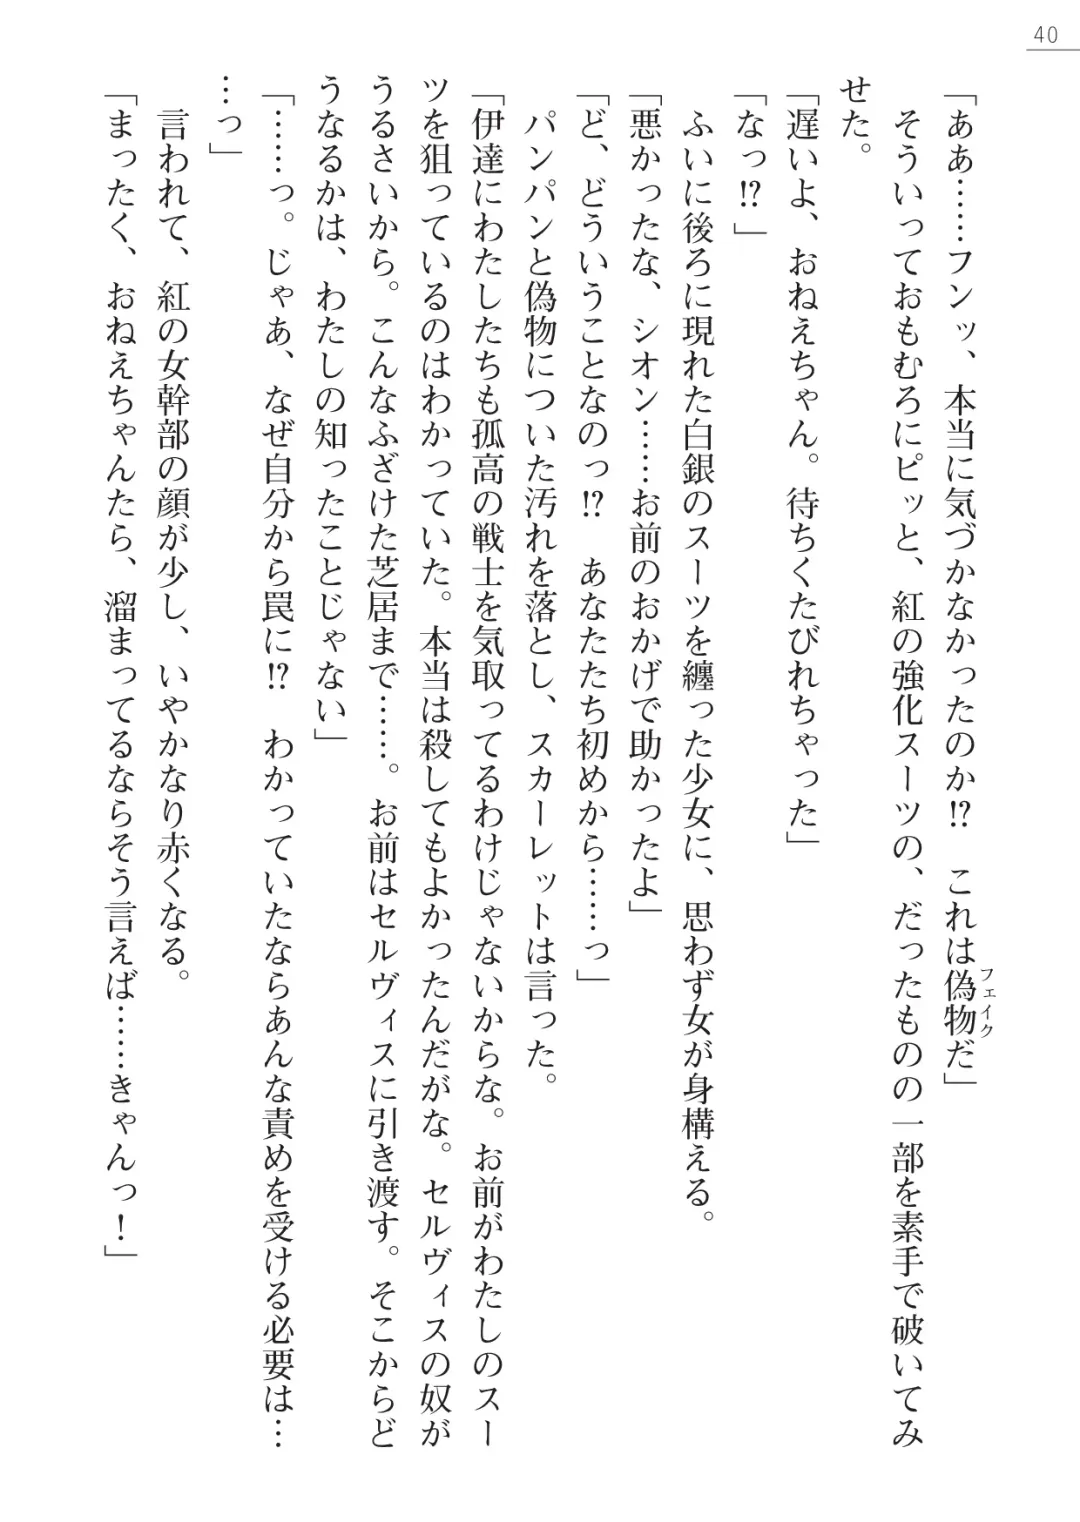 40
「ああ……フンッ、本当に気づかなかったのか!?　これは偽物だ」
フェイク
　そういっておもむろにピッと、紅の強化スーツの、だったものの一部を素手で破いてみ
せた。
「遅いよ、おねえちゃん。待ちくたびれちゃった」
「なっ!?」
　ふいに後ろに現れた白銀のスーツを纏った少女に、思わず女が身構える。
「悪かったな、シオン……お前のおかげで助かったよ」
「ど、どういうことなのっ!?　あなたたち初めから……っ」
　パンパンと偽物についた汚れを落とし、スカーレットは言った。
「伊達にわたしたちも孤高の戦士を気取ってるわけじゃないからな。お前がわたしのスー
ツを狙っているのはわかっていた。本当は殺してもよかったんだがな。セルヴィスの奴が
うるさいから。こんなふざけた芝居まで……。お前はセルヴィスに引き渡す。そこからど
うなるかは、わたしの知ったことじゃない」
「……っ。じゃあ、なぜ自分から罠に!?　わかっていたならあんな責めを受ける必要は…
…っ」
　言われて、紅の女幹部の顔が少し、いやかなり赤くなる。
「まったく、おねえちゃんたら、溜まってるならそう言えば……きゃんっ！」